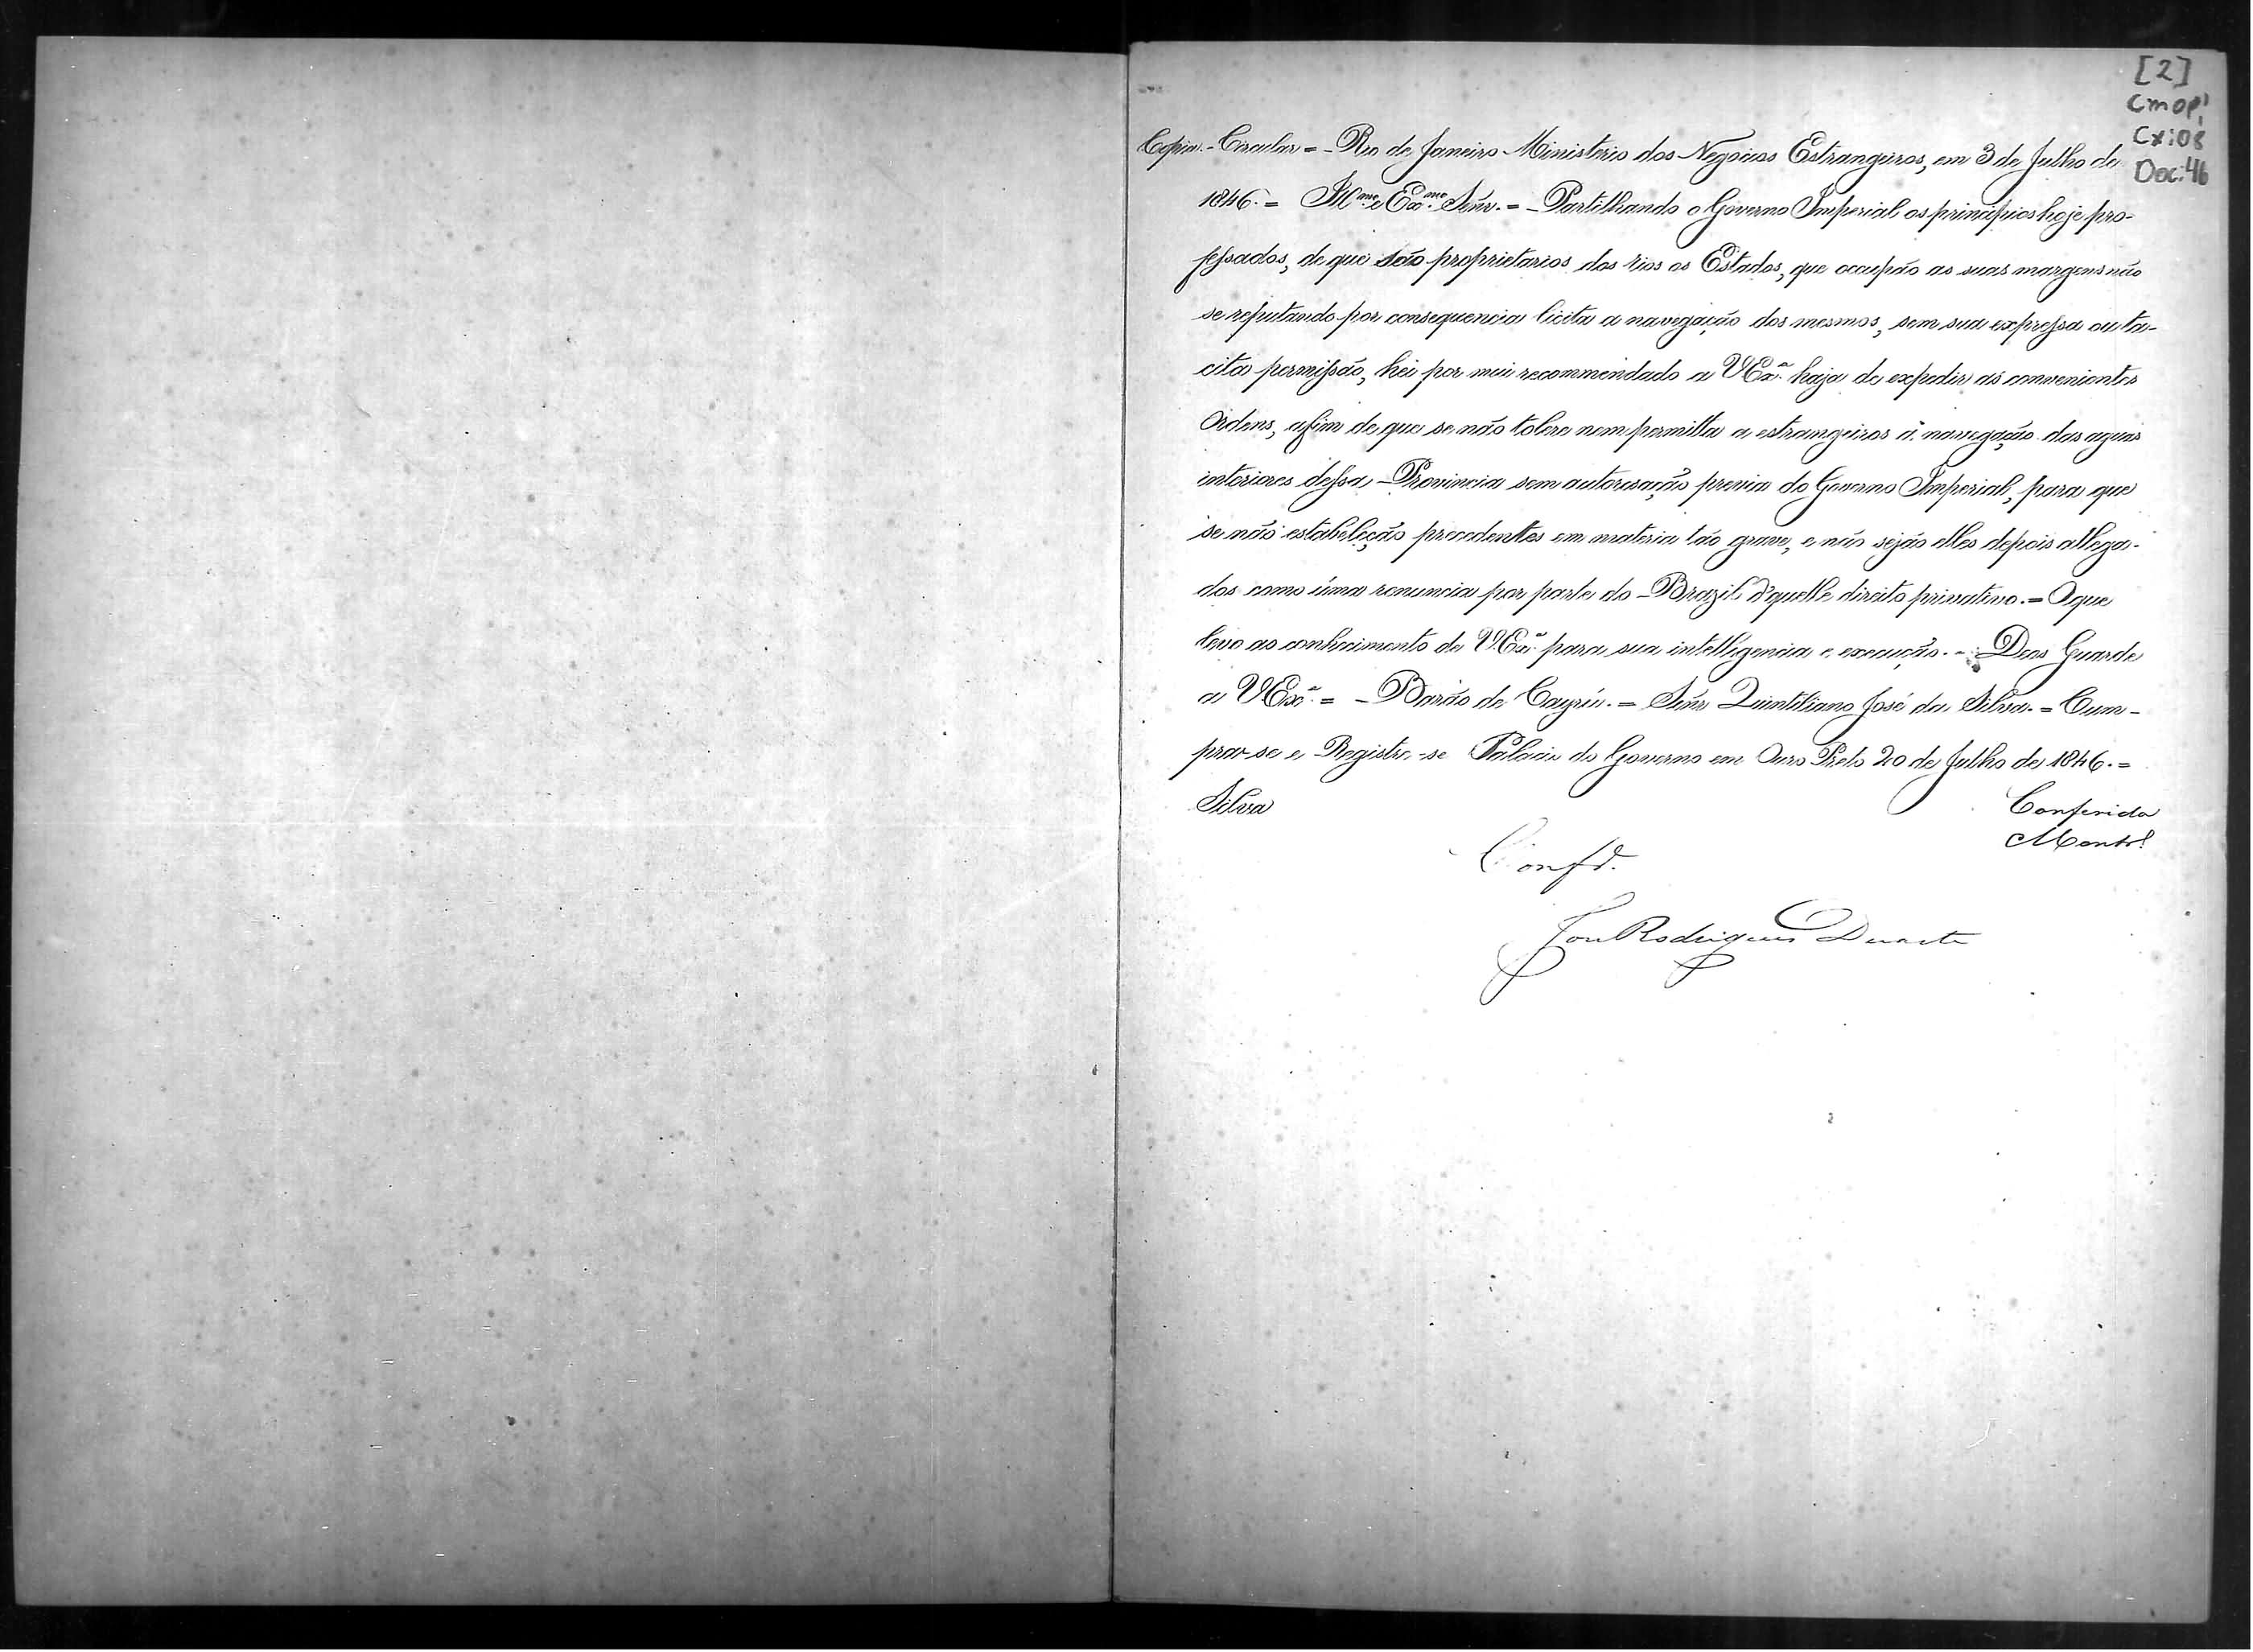 [2]
CMOP!
Cx:08
Doc:46
Copia.-Circular=-Rio de Janeiro-Ministerio dos Negocios Estrangeiros, em 3 de Julho de
1846.= Illmo. e Exmo. Sñr.=-Partilhando o Governo Imperial os principios hoje pro-
fessados, de que são proprietarios dos rios os Estados, que occupão as suas margens não
se reputando por consequencia licita a navegação dos mesmos, sem sua expressa ou ta-
cita permissão, hei por mui recommendado a VExa. haja de expedir as convenientes
Ordens, afim de que se não tolere nem permitta a estrangeiros á navegação das aguas
interiores dessa Provincia sem autorisação previa do Governo Imperial, para que
se não estabeleção precedentes em materia tão grave, e não sejão elles depois allega-
dos como úma renuncia por parte do Brazil d'quelle direito privativo.=O que
levo ao conhecimento de V.Exa. para sua intelligencia e execução.-Deos Guarde
a VExa.=-Barão de Cayrú.=Sñr Quintiliano José da Silva.=Cum-
pra-se e Registre-se Palacio do Governo em Ouro Preto 20 de Julho de 1846.=
Silva
Conferida
Confd.
Rodrigues Duarte